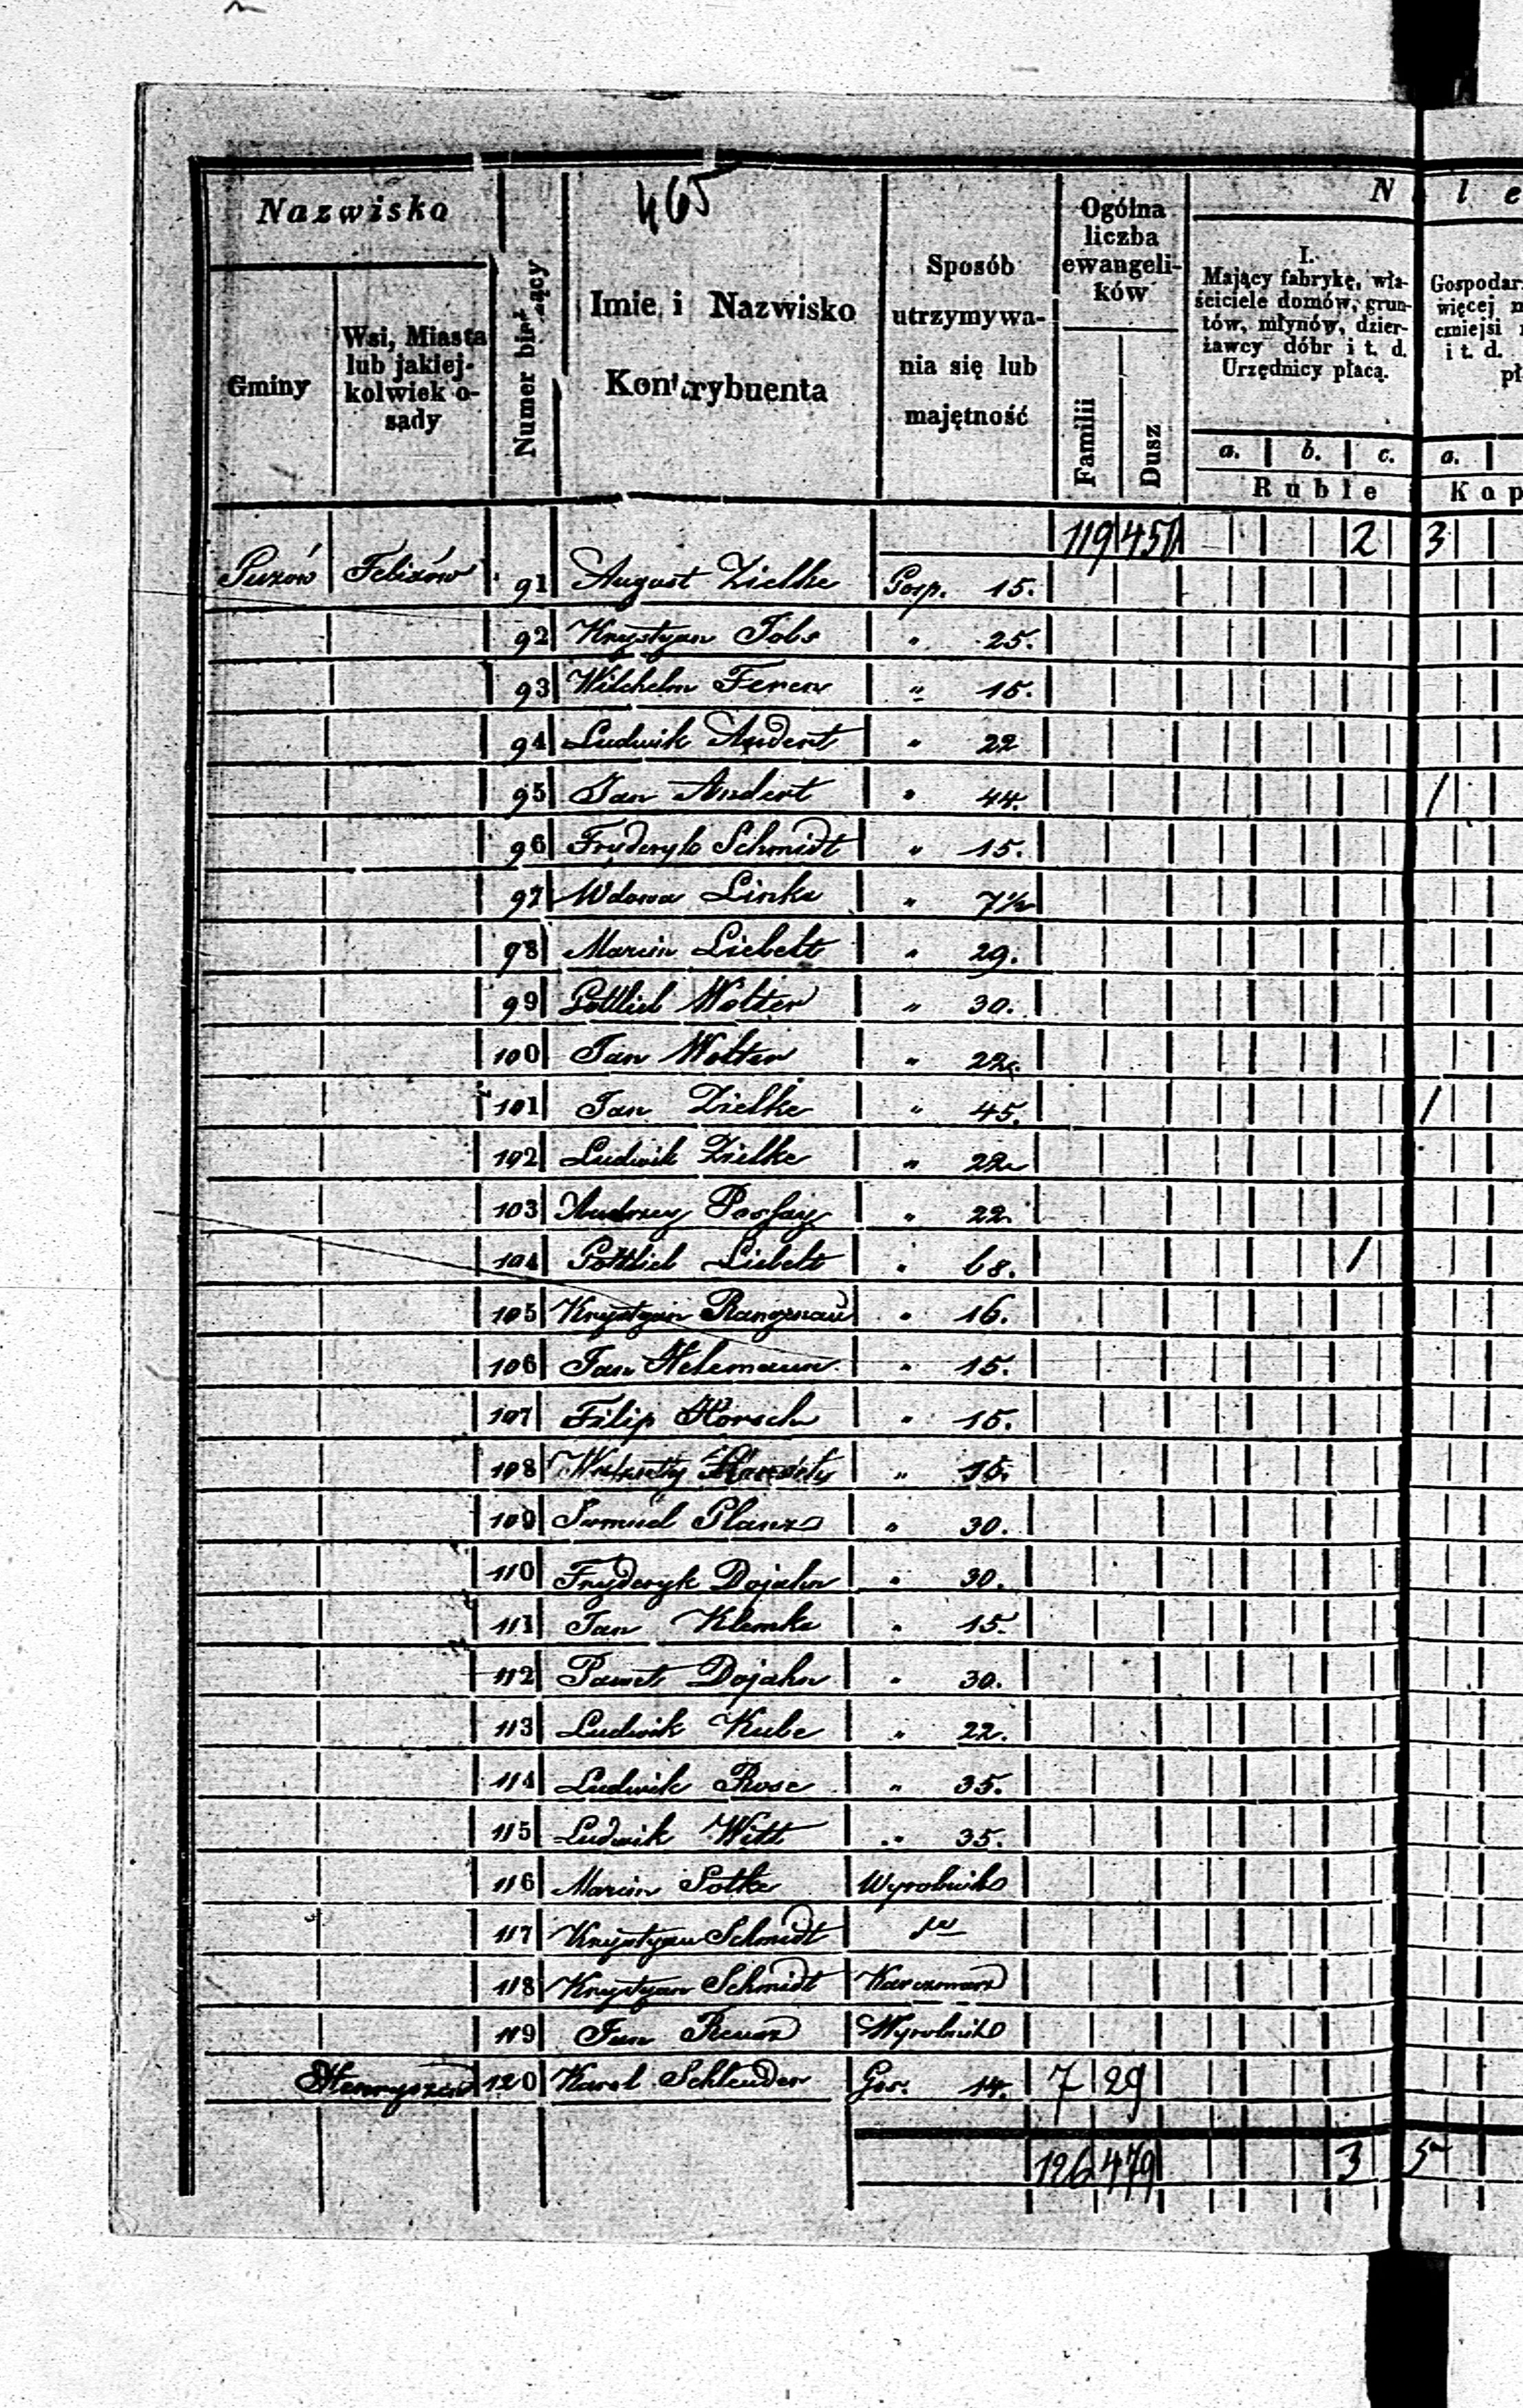 465
Nazwisko
Gminy
Wsi, Miasta
lub jakiej-
kolwiek o-
sady
Numer bieżący
Imie i Nazwisko
Kontrybuenta
Sposób
utrzymywa-
nia się lub
majętność
Ogólna
liczba
ewangeli-
ków
Familii
Dusz
N l e
I.
Mający fabrykę, wła-
ściciele domów, grun-
tów, młynów, dzier-
żawcy dóbr i t. d.
Urzędnicy płacą.
a. b. c.
Ruble
Gospodar
więcej
czniejsi
i t. d.
pł
a.
Kop
119 451 2 3
Puzów Felixów 91 August Zielke Gosp. 15.
92 Krystyan Tobs " 25.
93 Wilchelm Feren " 15.
94 Ludwik Andert " 22
95 Jan Andert " 44. /
96 Fryderyk Schmidt " 15.
97 Wdowa Linke " 7½
98 Marcin Liebelt " 29.
99 Gottlieb Wolter " 30.
100 Jan Wolter " 22.
101 Jan Zielke " 45. /
102 Ludwik Zielke " 22
103 Andrzey " 22
104 Gottlieb Liebelt " 68. /
105 Krystyan " 16.
106 Jan " 15.
107 Filip Horsch " 15.
108 " 15.
109 Samuel Planz " 30.
110 Fryderyk Dojahn " 30.
111 Jan Klemke " 15.
112 Paweł Dojahn " 30.
113 Ludwik Kube " 22.
114 Ludwik Rose " 35.
115 Ludwik Witt " 35.
116 Marcin Potke Wyrobnik
117 Krystyan Schmidt
118 Krystyan Schmidt Karczmarz
119 Jan Wyrobnik
120 Karol Schleuder Gos. 14. 7 29
126 479 3 5